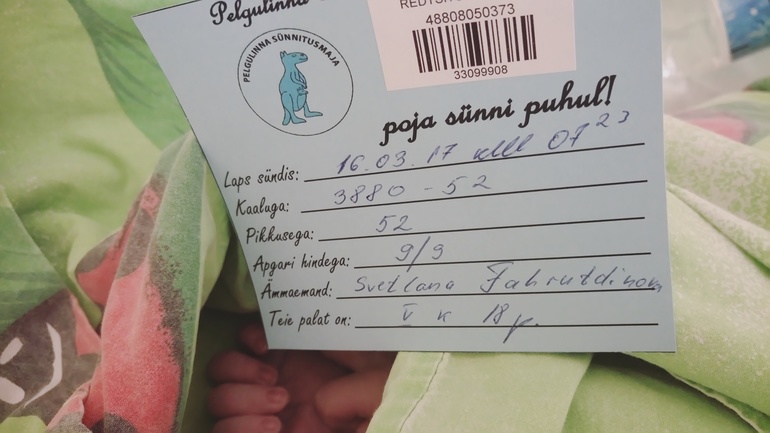 Pelgulinna
48808050373
33099908
PELGULINNA SÜNNITUSMAJA
poja sünni puhul!
Laps sündis: 16.03.17 kell 07 23
Kaaluga: 3880 - 52
Pikkusega: 52
Apgari hindega: 9/9
Ämmaemand: Svetlana Fahrutdinova
Teie palat on: V k 18 p.